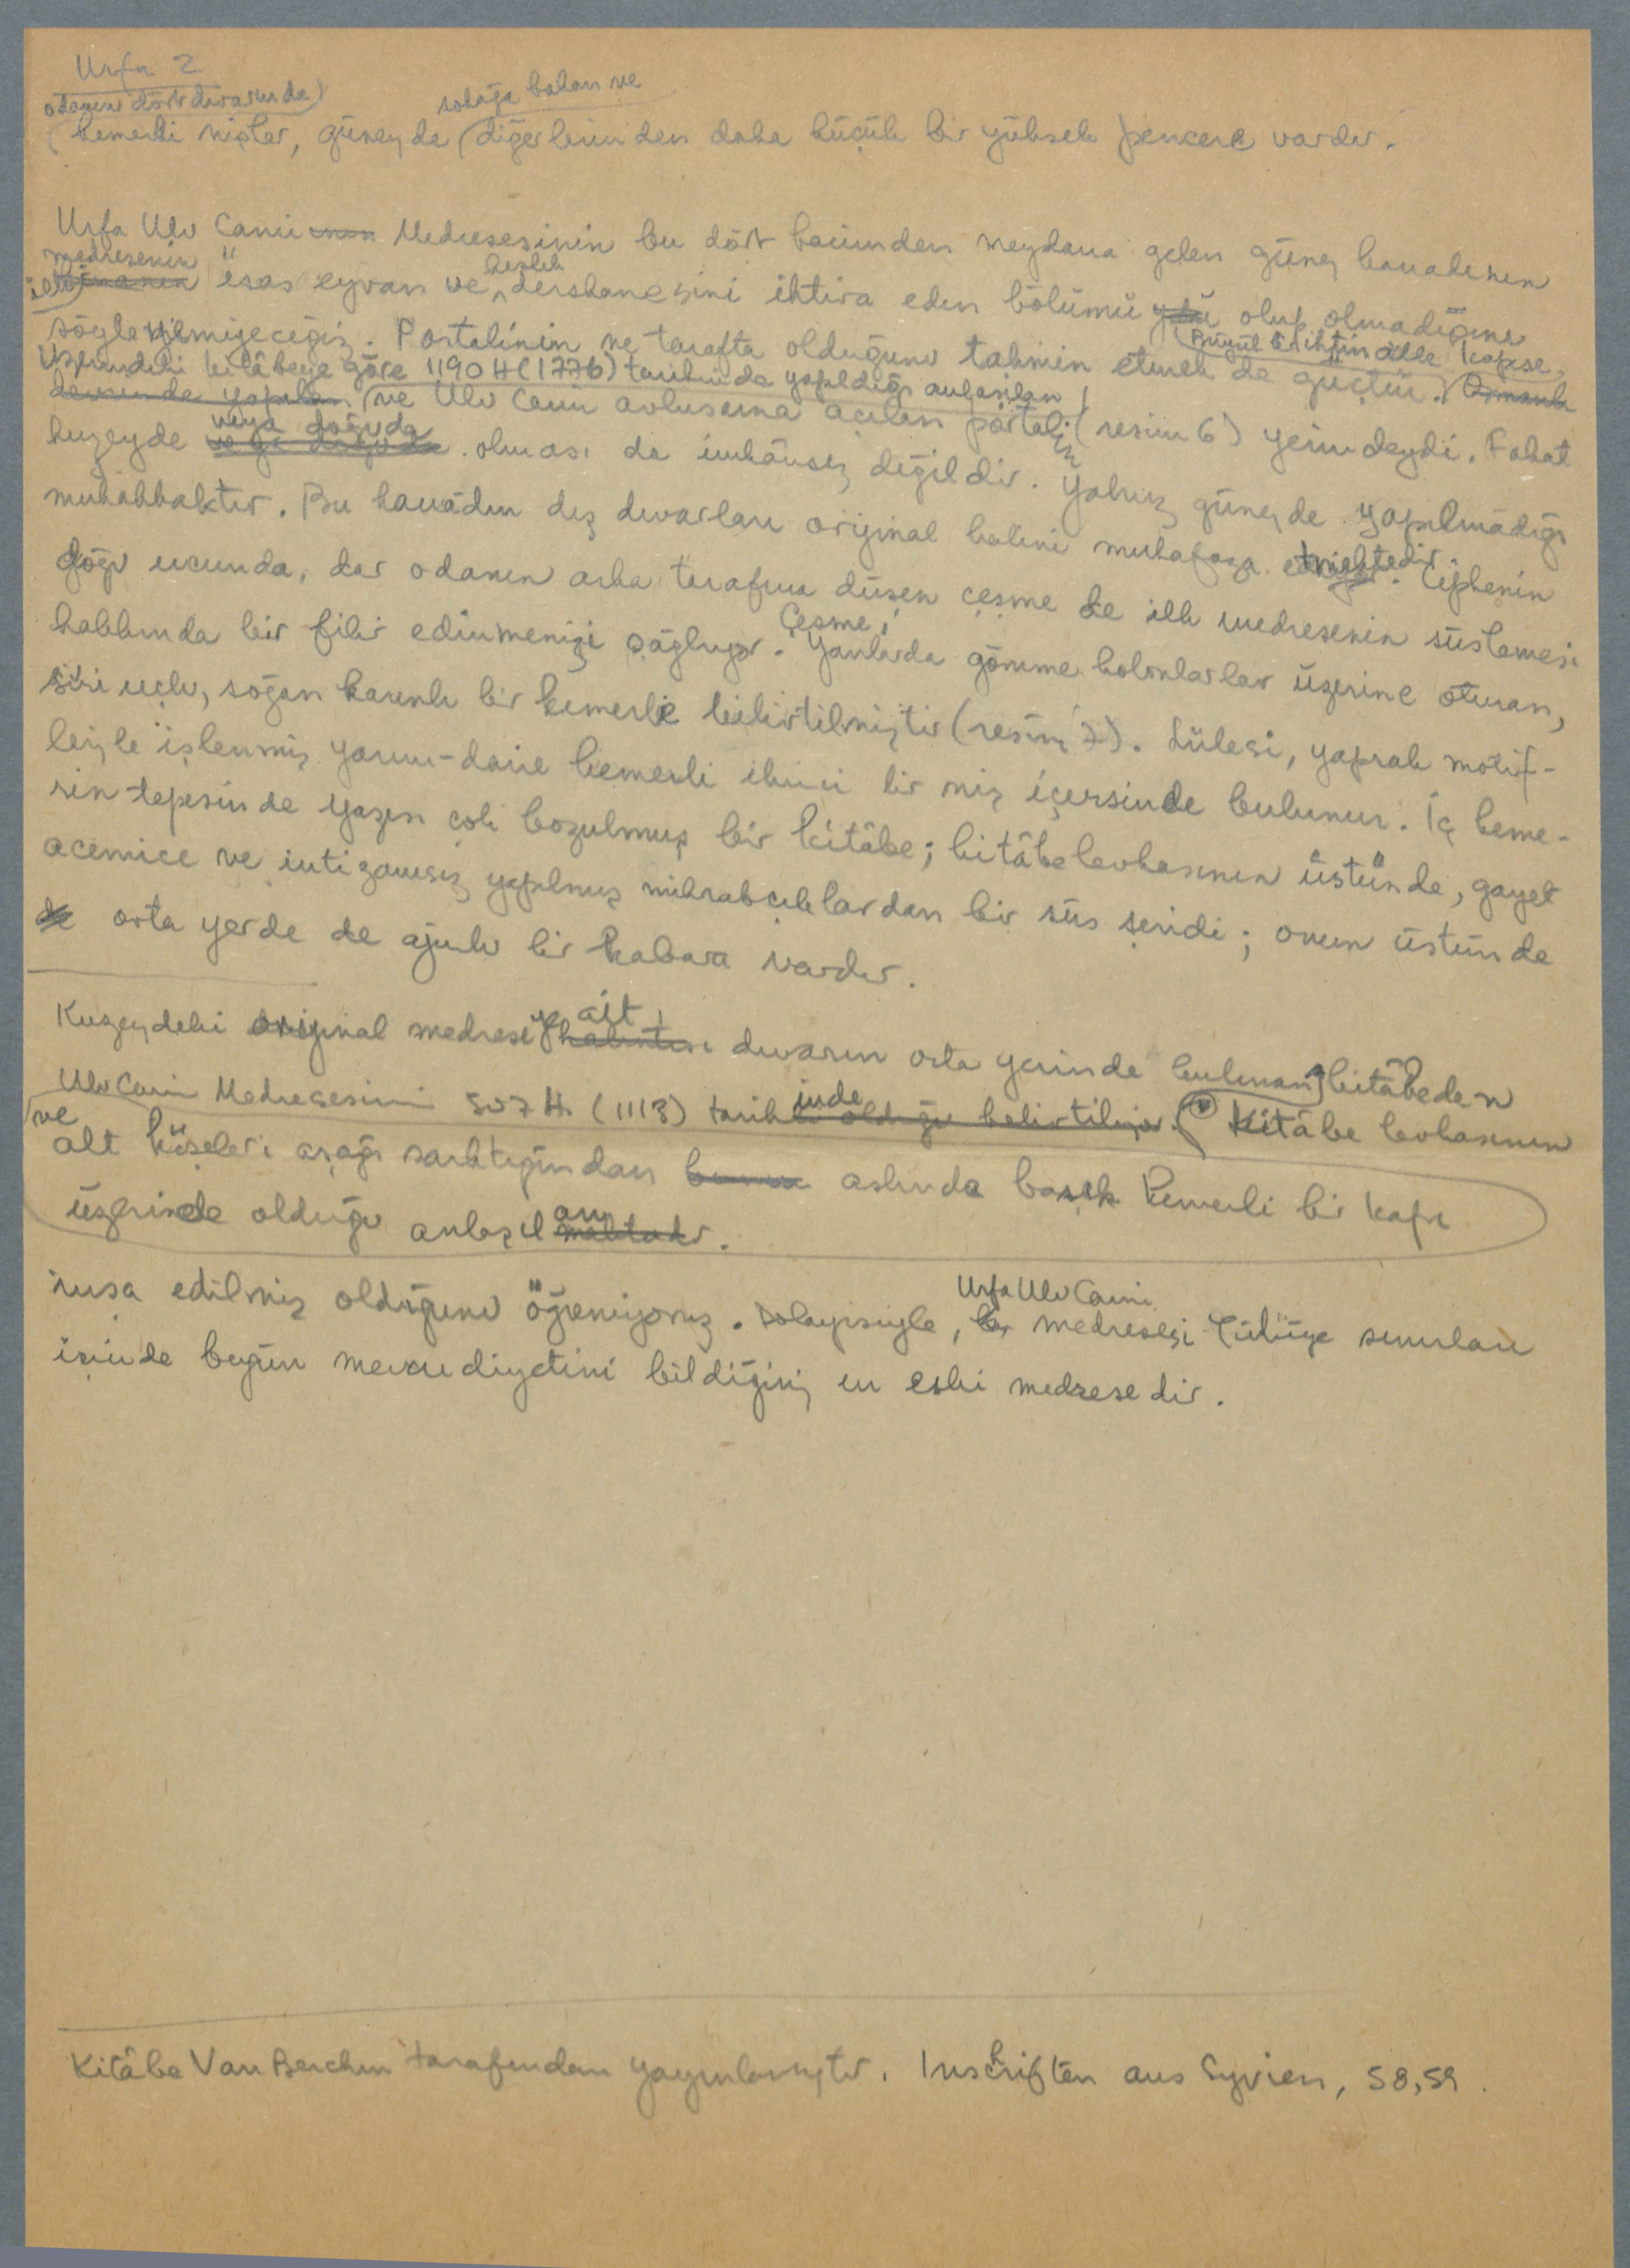 Urfa 2
odanın dört duvarında sokağa bakan ve
kemerli nişler, güneyde diğerlerinden daha küçük bir yüksek pencere vardır.
Urfa Ulu Camii Medresesinin bu dört hacimden meydana gelen güney kanadının
medresenin kışlık
ilk esas eyvan ve dershanesini ihtiva eden bölümü olup olmadığını
söyleyemiyeceğiz. Portalinin ne tarafta olduğunu tahmin etmek de güçtür. Osmanlı
Büyük bir ihtimalle kapısı,
üzerindeki kitâbeye göre 1190 H (1776) tarihinde yapıldığı anlaşılan
devrinde yapılan ve Ulu Cami avlusuna açılan portalin (resim 6) yerindeydi. Fakat
kuzeyde veya doğuda olması da imkânsız değildir. Yalnız güneyde yapılmadığı
muhakkaktır. Bu kanadın dış duvarları orijinal halini muhafaza etmektedir. Cephenin
doğu ucunda, dar odanın arka tarafına düşen çeşme de ilk medresenin süslemesi
hakkında bir fikir edinmemizi sağlıyor. Çeşme, Yanlarda gömme kolonlarlar üzerine oturan,
sivri uçlu, soğan karınlı bir kemerle belirtilmiştir (resim 7). Lülesi, yaprak motif-
leriyle işlenmiş yarım-daire kemerli ikinci bir niş içersinde bulunur. İç keme-
rin tepesinde yazısı çok bozulmuş bir kitâbe; kitâbe levhasının üstünde, gayet
acemice ve intizamsız yapılmış mihrabcıklardan bir süs şeridi; onun üstünde
de orta yerde de ajurlu bir kabara vardır.
Kuzeydeki orijinal medreseye ait kalıntısı duvarın orta yerinde bulunan kitâbeden
Ulu Cami Medresesinin 507 H. (1113) tarihinde olduğu belirtiliyor. Kitâbe levhasının
ve
alt köşeleri aşağı sarktığından aslında basık kemerli bir kapı
üzerinde olduğu anlaşılan maktadır.
inşa edilmiş olduğunu öğreniyoruz. Dolayısiyle, bu Urfa Ulu Camii medresesi Türkiye sınırları
içinde bugün mevcudiyetini bildiğimiz en eski medresedir.
Kitâbe Van Berchem tarafından yayınlanmıştır. Inschriften aus Syrien, 58, 59.